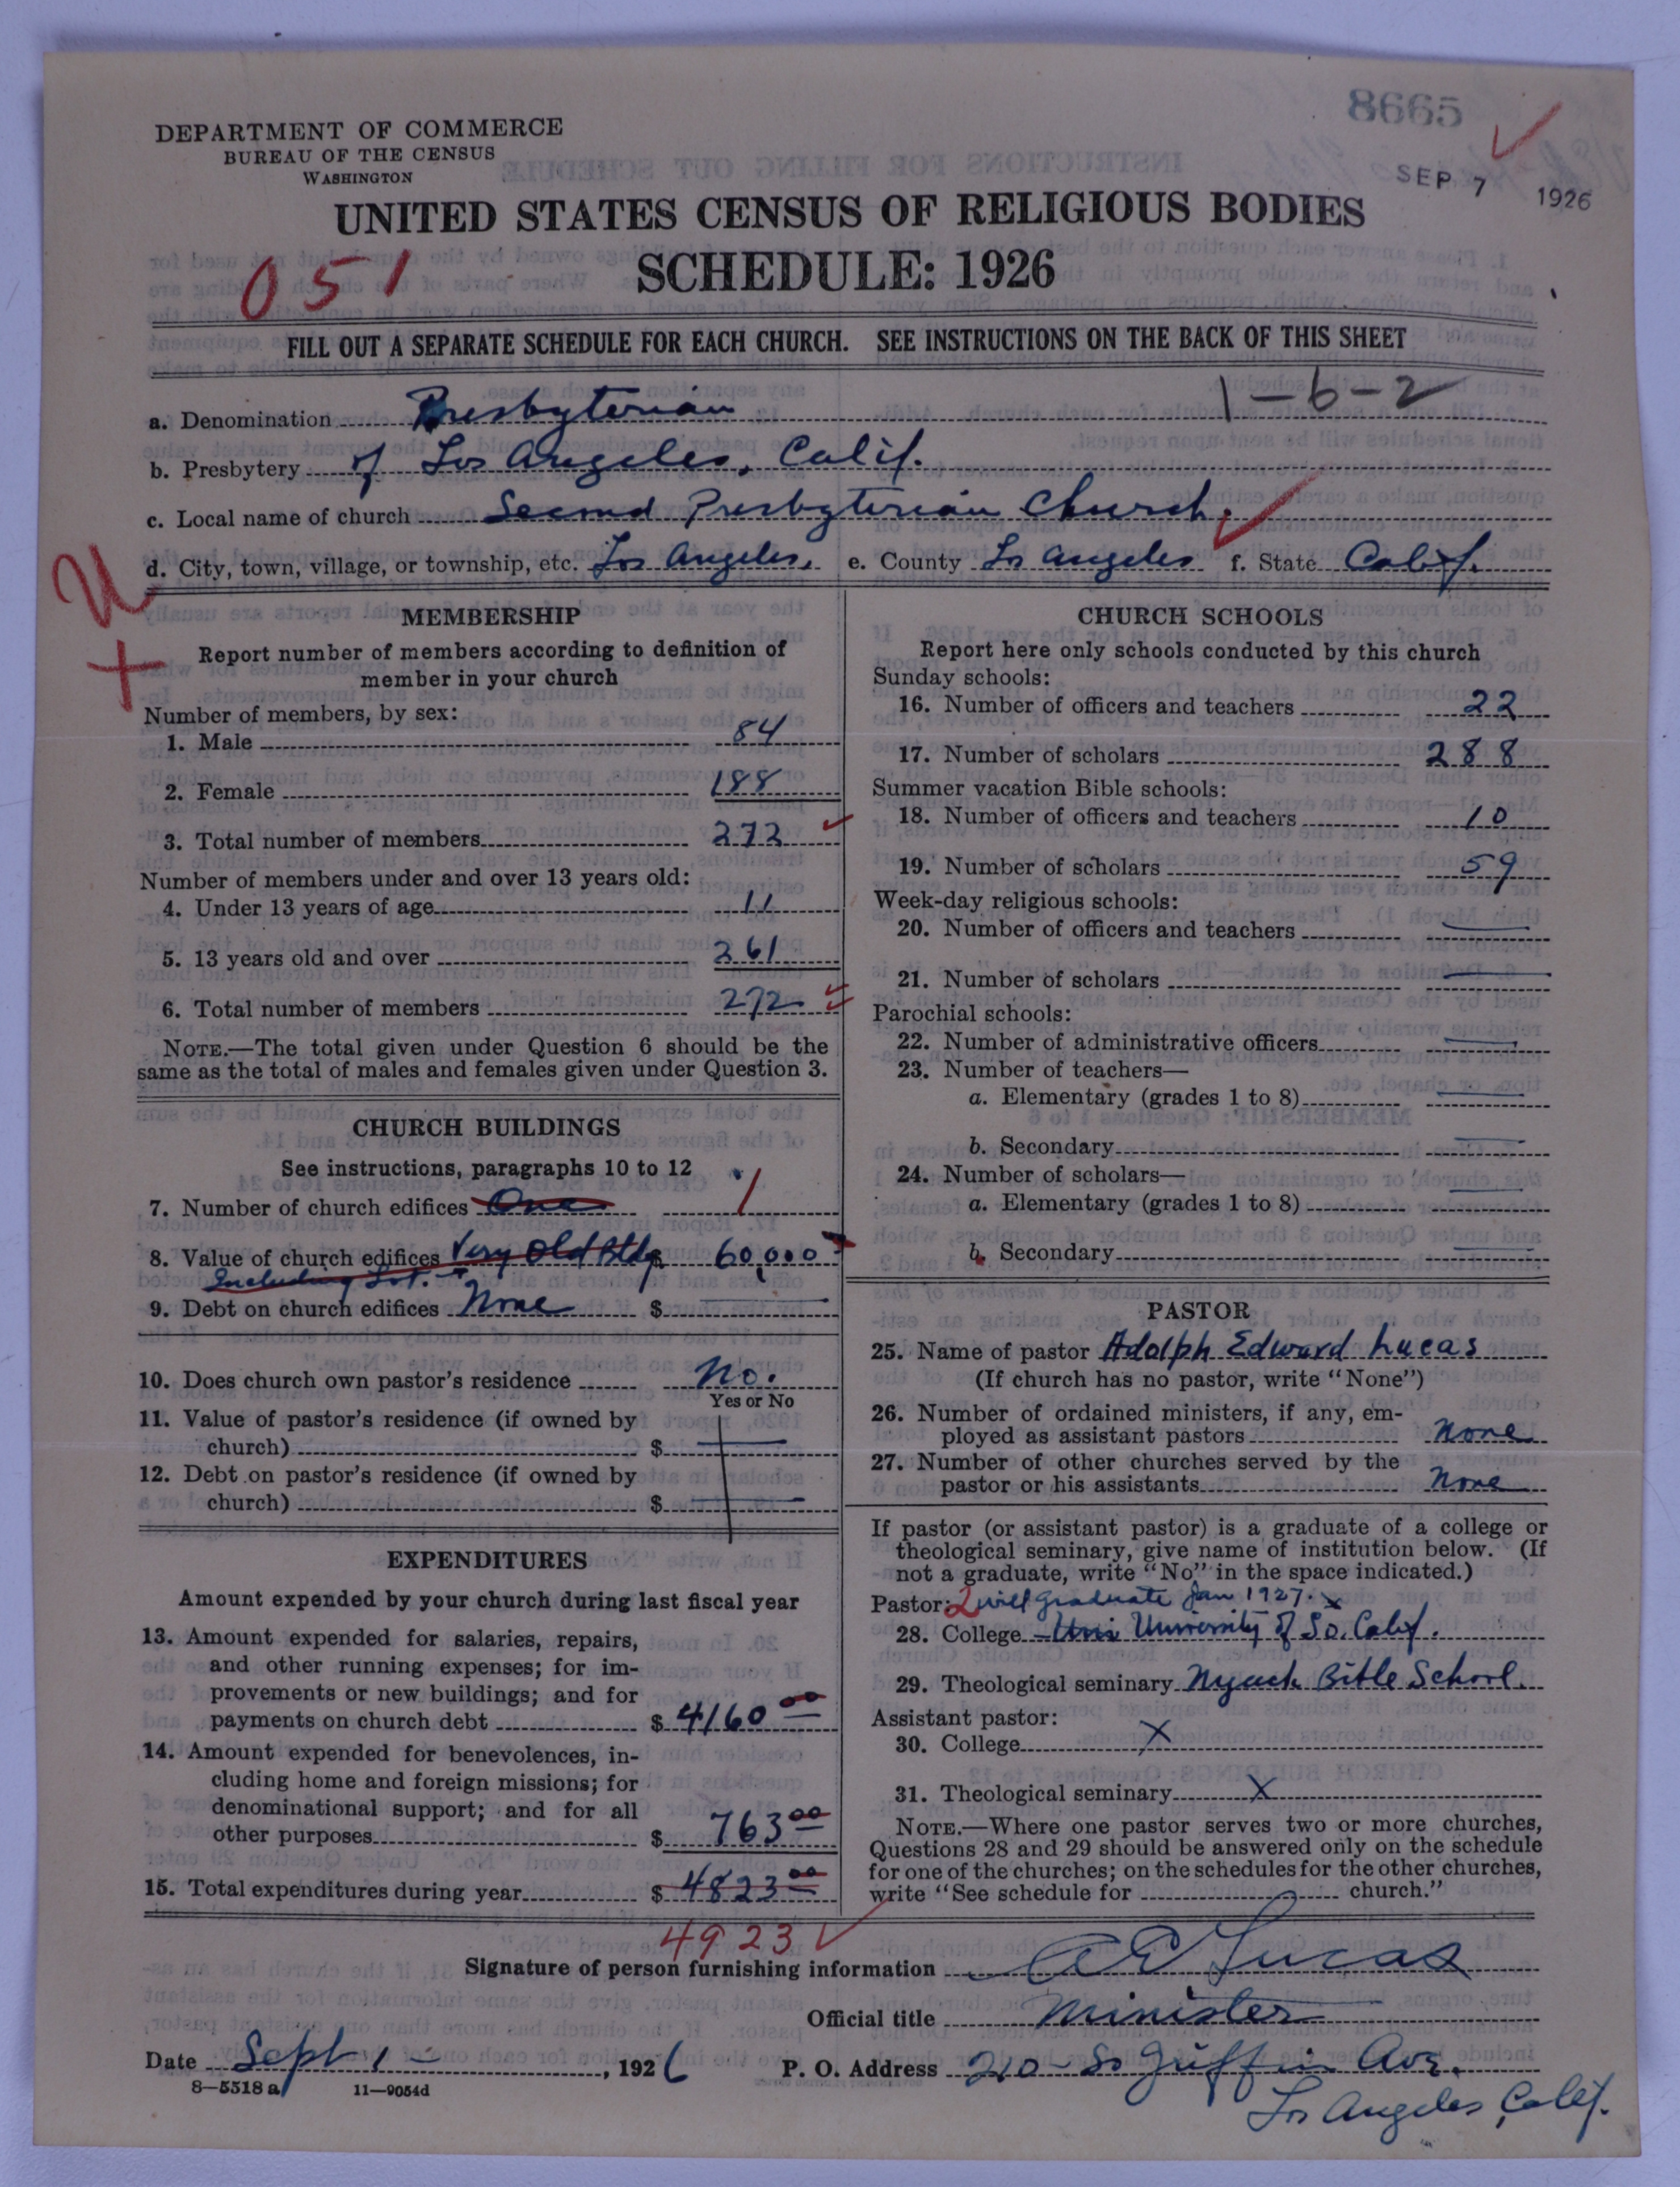 8665
DEPARTMENT OF COMMERCE
BUREAU OF THE CENSUS
WASHINGTON
SEP 7 1926
UNITED STATES CENSUS OF RELIGIOUS BODIES
SCHEDULE: 1926
051
FILL OUT A SEPARATE SCHEDULE FOR EACH CHURCH. SEE INSTRUCTIONS ON THE BACK OF THIS SHEET
1-6-2
a. Denomination Presbyterian
b. Presbytery of Los Angeles, Calif.
c. Local name of church Second Presbyterian Church.
d. City, town, village, or township, etc. Los Angeles, e. County Los Angeles f. State Calif.
U
+
MEMBERSHIP
Report number of members according to definition of
member in your church
Number of members, by sex:
1. Male 84
2. Female 188
3. Total number of members 272
Number of members under and over 13 years old:
4. Under 13 years of age 11
5. 13 years old and over 261
6. Total number of members 272
NOTE.—The total given under Question 6 should be the
same as the total of males and females given under Question 3.
CHURCH BUILDINGS
See instructions, paragraphs 10 to 12
7. Number of church edifices One 1
8. Value of church edifices Very Old Bldg 60,000
Including Lot.
9. Debt on church edifices None $
10. Does church own pastor's residence No.
Yes or No
11. Value of pastor's residence (if owned by
church) $
12. Debt on pastor's residence (if owned by
church) $
EXPENDITURES
Amount expended by your church during last fiscal year
13. Amount expended for salaries, repairs,
and other running expenses; for im-
provements or new buildings; and for
payments on church debt $ 4160 00
14. Amount expended for benevolences, in-
cluding home and foreign missions; for
denominational support; and for all
other purposes $ 763 00
15. Total expenditures during year $ 4823 00
4923
CHURCH SCHOOLS
Report here only schools conducted by this church
Sunday schools:
16. Number of officers and teachers 22
17. Number of scholars 288
Summer vacation Bible schools:
18. Number of officers and teachers 10
19. Number of scholars 59
Week-day religious schools:
20. Number of officers and teachers
21. Number of scholars
Parochial schools:
22. Number of administrative officers
23. Number of teachers—
a. Elementary (grades 1 to 8)
b. Secondary
24. Number of scholars—
a. Elementary (grades 1 to 8)
b. Secondary
PASTOR
25. Name of pastor Adolph Edward Lucas
(If church has no pastor, write "None")
26. Number of ordained ministers, if any, em-
ployed as assistant pastors None
27. Number of other churches served by the
pastor or his assistants None
If pastor (or assistant pastor) is a graduate of a college or
theological seminary, give name of institution below. (If
not a graduate, write "No" in the space indicated.)
Pastor: 2 will graduate Jan 1927. x
28. College Uni University of So. Calif.
29. Theological seminary Nyack Bible School.
Assistant pastor:
30. College X
31. Theological seminary X
NOTE.—Where one pastor serves two or more churches,
Questions 28 and 29 should be answered only on the schedule
for one of the churches; on the schedules for the other churches,
write "See schedule for church."
Signature of person furnishing information A E Lucas
Official title Minister
Date Sept 1 - , 1926 P. O. Address 210 - So Griffin Ave.
8—5518a 11—9054d
Los Angeles, Calif.